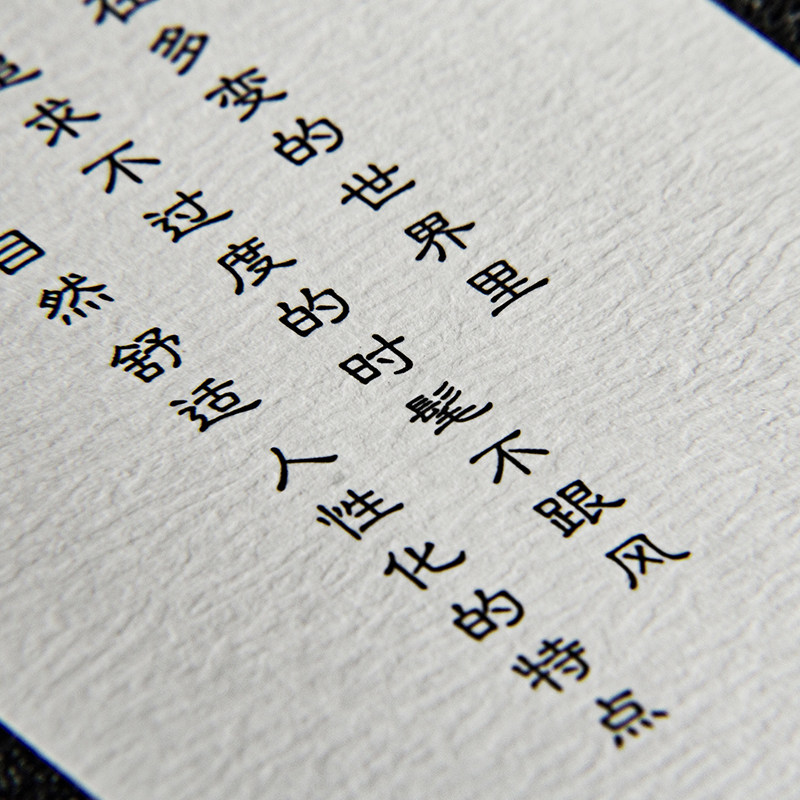 在多变的世界里
追求不过度的时髦不跟风
自然舒适人性化的特点